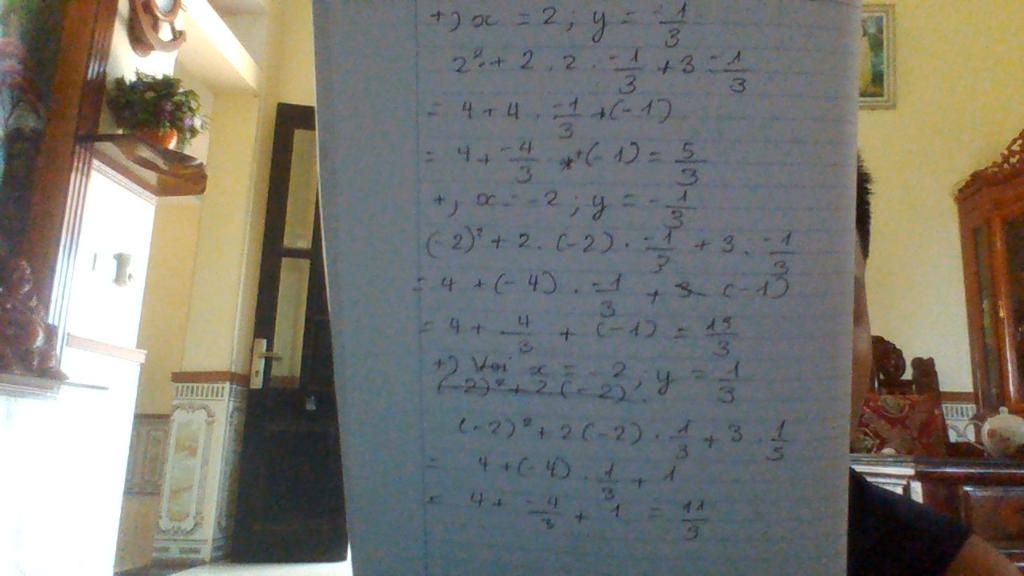 +, x = 2 ; y = -1/3
2² + 2 . 2 . -1/3 + 3 . -1/3
= 4 + 4 . -1/3 + (-1)
= 4 + -4/3 + (-1) = 5/3
+, x = -2 ; y = -1/3
(-2)² + 2 . (-2) . -1/3 + 3 . -1/3
= 4 + (-4) . -1/3 + (-1)
= 4 + 4/3 + (-1) = 13/3
+) Với x = -2 ; y = 1/3
(-2)² + 2 (-2) .
(-2)² + 2(-2) . 1/3 + 3 . 1/3
= 4 + (-4) . 1/3 + 1
= 4 + -4/3 + 1 = 11/3